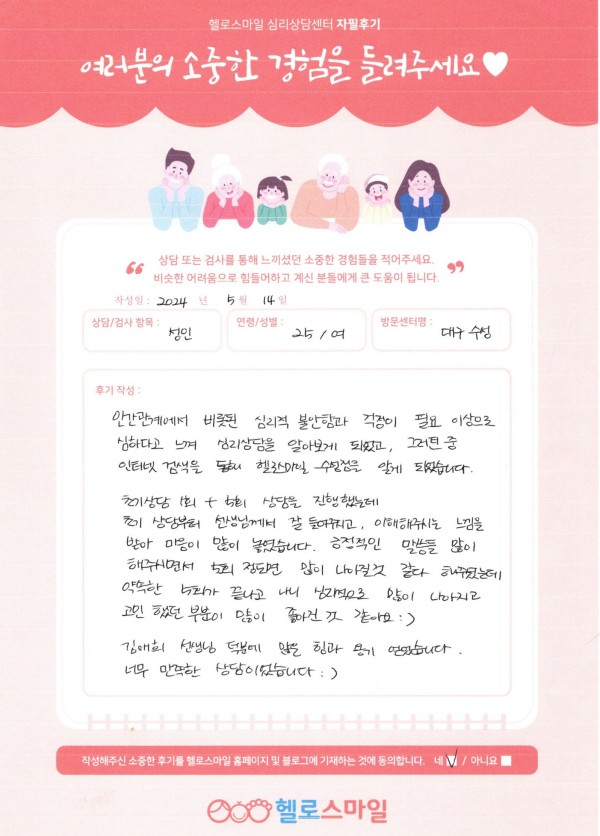 헬로스마일 심리상담센터 자필후기
여러분의 소중한 경험을 들려주세요♥
상담 또는 검사를 통해 느끼셨던 소중한 경험들을 적어주세요.
비슷한 어려움으로 힘들어하고 계신 분들에게 큰 도움이 됩니다.
작성일 : 2024 년 5 월 14 일
상담/검사 항목 : 성인
연령/성별 : 25 / 여
방문센터명 : 대구 수성
후기 작성 :
인간관계에서 비롯된 심리적 불안함과 걱정이 필요 이상으로
심하다고 느껴 심리상담을 알아보게 되었고, 그러던 중
인터넷 검색을 통해 헬로스마일 수성점을 알게 되었습니다.
초기상담 1회 + 5회 상담을 진행했는데
초기 상담부터 선생님께서 잘 들어주시고, 이해해주시는 느낌을
받아 마음이 많이 놓였습니다. 긍정적인 말씀들 많이
해주시면서 5회 정도면 많이 나아질것 같다 해주셨는데
약속한 5회가 끝나고 나니 심리적으로 많이 나아지고
고민 했던 부분이 많이 좋아진 것 같아요 : )
김애희 선생님 덕분에 많은 힘과 용기 얻었습니다.
너무 만족한 상담이었습니다 : )
작성해주신 소중한 후기를 헬로스마일 홈페이지 및 블로그에 기재하는 것에 동의합니다. 네 ✓ / 아니요
헬로스마일